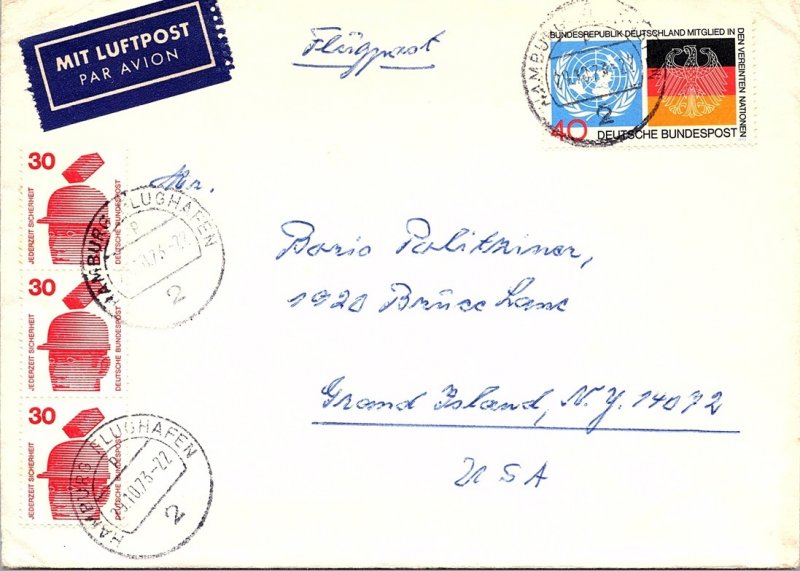 MIT LUFTPOST
PAR AVION
Flugpost
BUNDESREPUBLIK DEUTSCHLAND MITGLIED IN
DEN VEREINTEN NATIONEN
40 DEUTSCHE BUNDESPOST
HAMBURG
2
30
JEDERZEIT SICHERHEIT
DEUTSCHE BUNDESPOST
30
JEDERZEIT SICHERHEIT
DEUTSCHE BUNDESPOST
30
JEDERZEIT SICHERHEIT
DEUTSCHE BUNDESPOST
HAMBURG FLUGHAFEN
10.73-22
2
HAMBURG FLUGHAFEN
10.73-22
2
Mr.
Boris Politziner,
1920 Brüce Lane
Grand Island, N.Y. 14072
USA